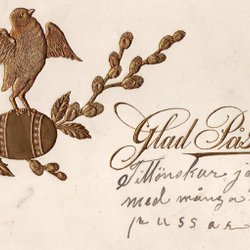 Glad Pås
Tillönskar je
med många
pussar